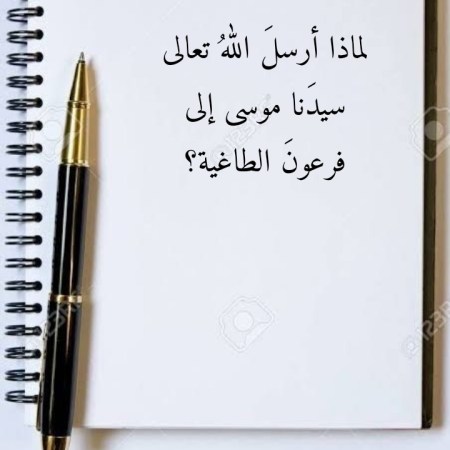 لماذا أرسلَ اللهُ تعالى
سيدَنا مُوسى إلى
فرعونَ الطاغية؟